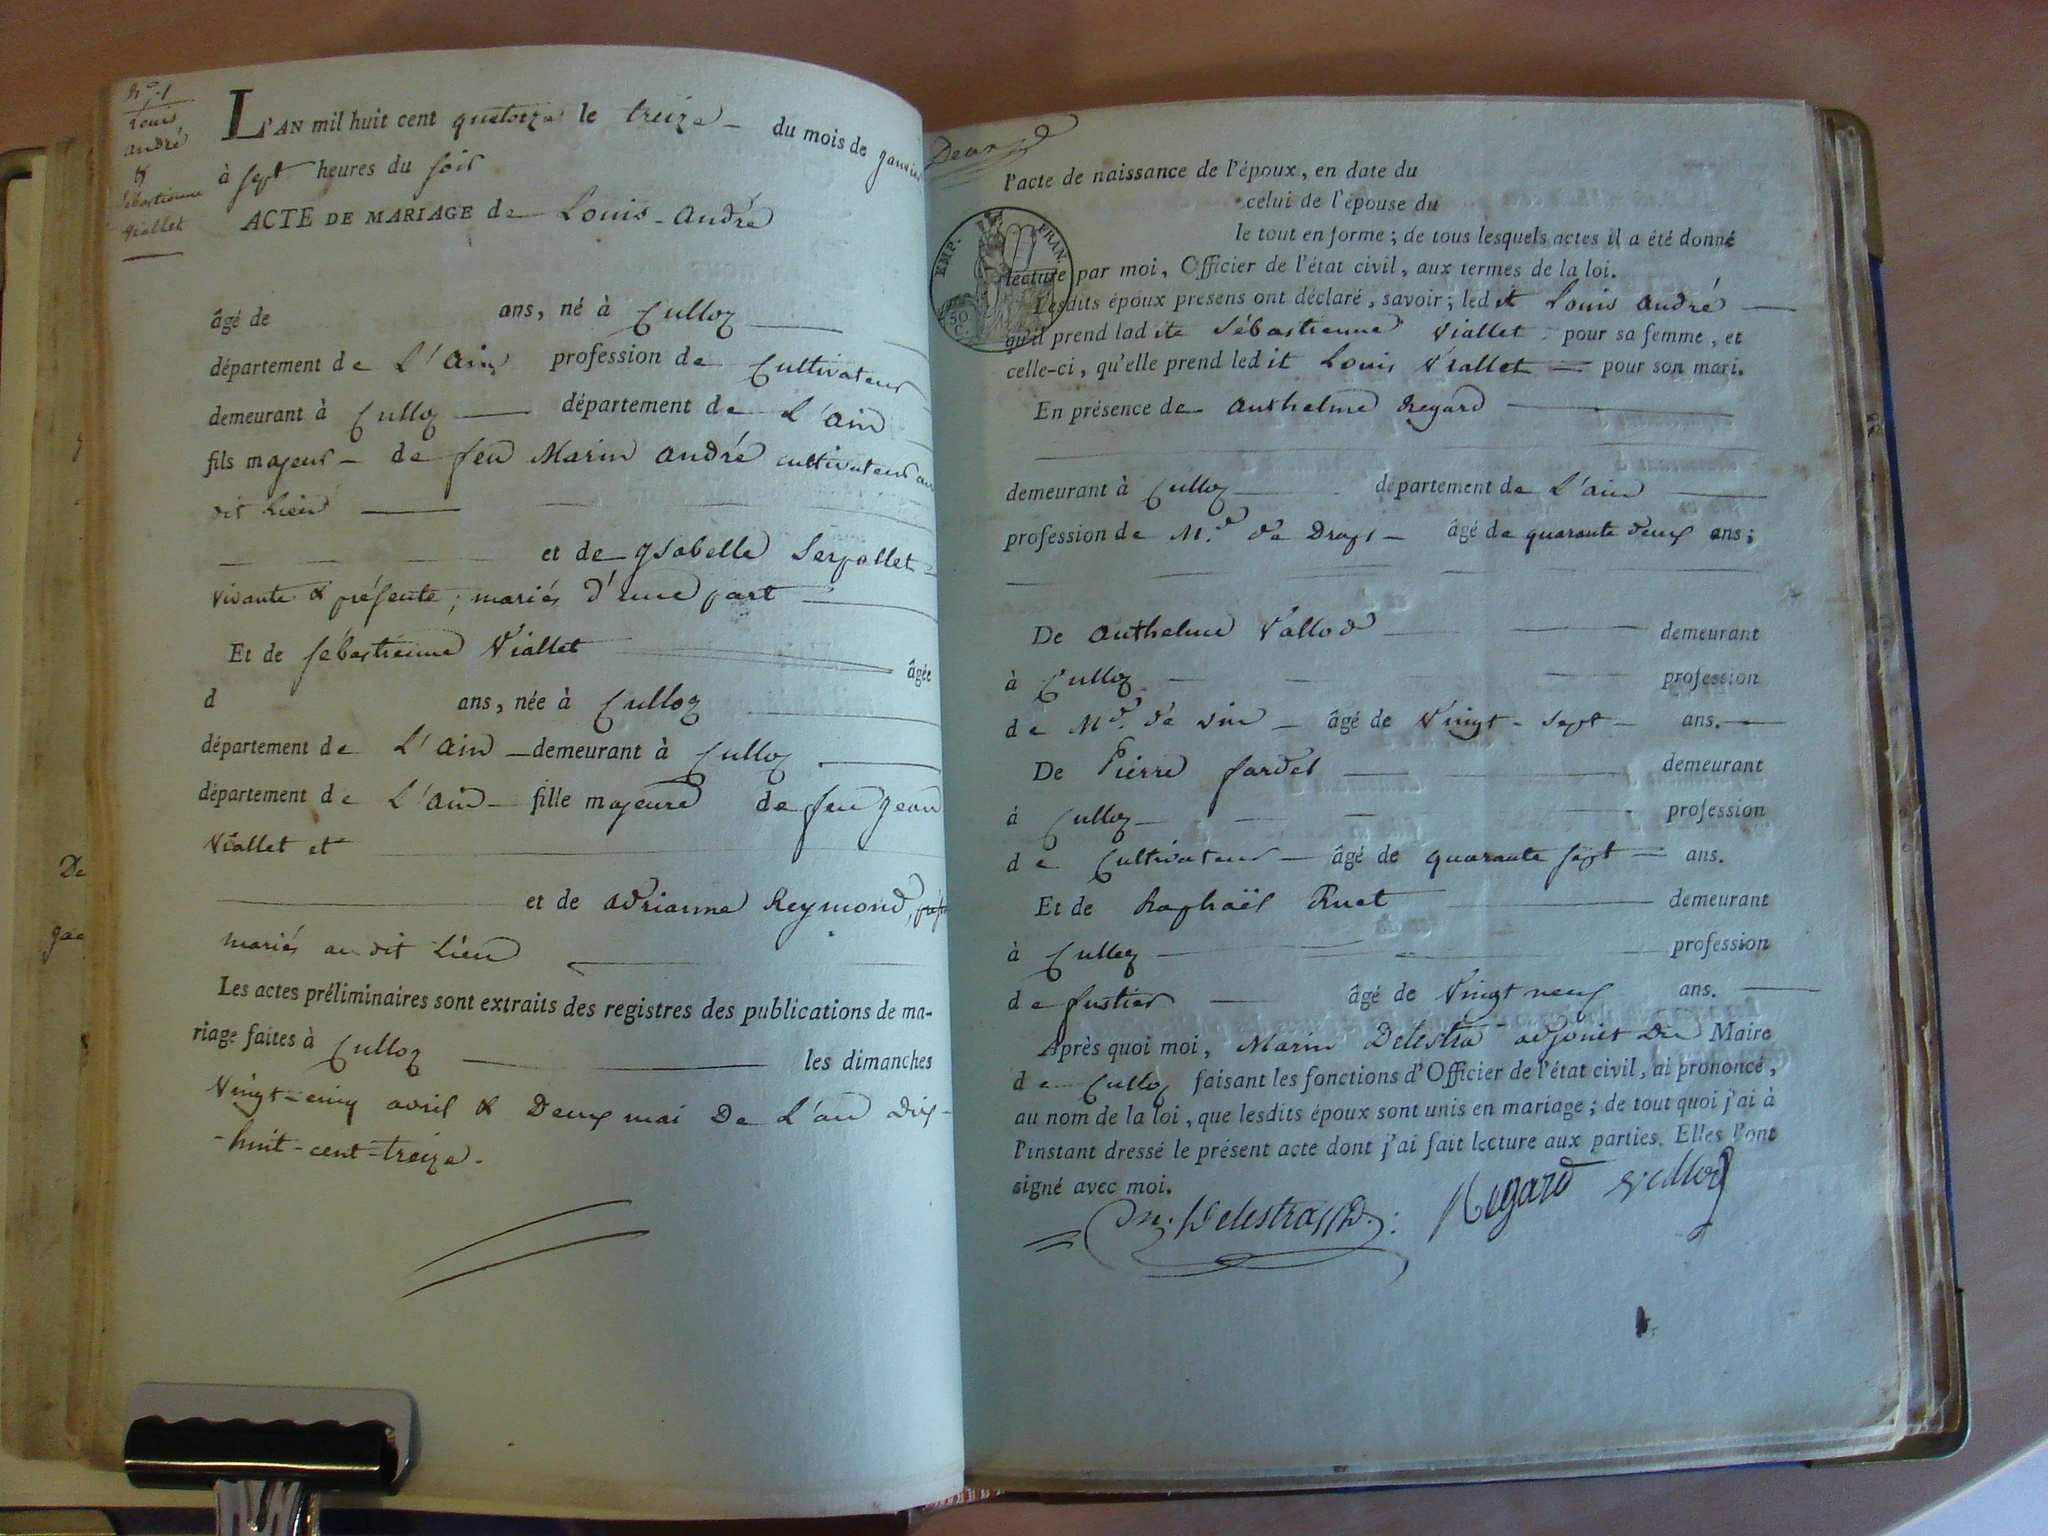 N.° 1
Louis
andré
&
sébastienne
Viallet
L'AN mil huit cent quatorze le treize du mois de janvier
à sept heures du soir
ACTE DE MARIAGE de Louis André
âgé de ans, né à Culloz
département de L'Ain profession de Cultivateur
demeurant à Culloz département de L'Ain
fils majeur de feu Marin André cultivateur au
dit Lieu
et de ysabelle Serpollet
vivante & présente; mariés d'une part
Et de sébastienne Viallet âgée
d ans, née à Culloz
département de L'Ain demeurant à Culloz
département de L'Ain fille majeure de feu jean
Viallet et
et de adrianne Reymond,
mariés au dit Lieu
Les actes préliminaires sont extraits des registres des publications de ma-
riage faites à Culloz les dimanches
Vingt-cinq avril & Deux mai De L'an dix-
-huit-cent-treize.
De
l'acte de naissance de l'époux, en date du
celui de l'épouse du
le tout en forme; de tous lesquels actes il a été donné
lecture par moi, Officier de l'état civil, aux termes de la loi.
EMP. FRAN.
50
C.
Lesdits époux présens ont déclaré, savoir; ledit Louis André
qu'il prend ladite Sébastienne Viallet pour sa femme, et
celle-ci, qu'elle prend ledit Louis Viallet pour son mari.
En présence de Anthelme Regard
demeurant à Culloz département de L'ain
profession de M.d de Draps âgé de quarante deux ans;
De Anthelme Vallod demeurant
à Culloz profession
de Md. de vin âgé de Vingt-sept ans.
De Pierre fardel demeurant
à Culloz profession
de Cultivateur âgé de quarante sept ans.
Et de Raphaël Ruet demeurant
à Culloz profession
de fustier âgé de Vingt neuf ans.
Après quoi moi, Marin Delestra adjoint Du Maire
de Culloz faisant les fonctions d'Officier de l'état civil, ai prononcé,
au nom de la loi, que lesdits époux sont unis en mariage; de tout quoi j'ai à
l'instant dressé le présent acte dont j'ai fait lecture aux parties. Elles l'ont
signé avec moi.
Regard